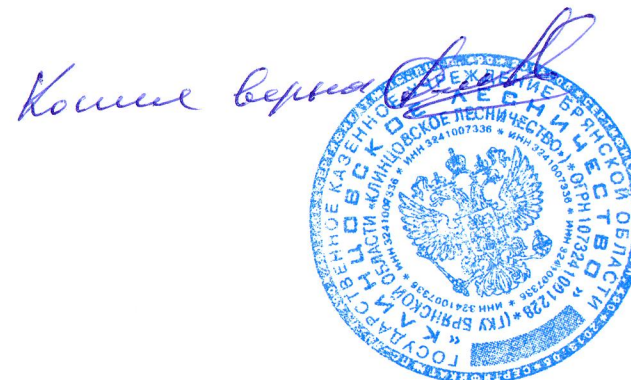 Копия верна
ГОСУДАРСТВЕННОЕ КАЗЕННОЕ УЧРЕЖДЕНИЕ БРЯНСКОЙ ОБЛАСТИ
«КЛИНЦОВСКОЕ ЛЕСНИЧЕСТВО»
(ГКУ БРЯНСКОЙ ОБЛАСТИ «КЛИНЦОВСКОЕ ЛЕСНИЧЕСТВО») * ОГРН 1073241001228 *
ИНН 3241007336 * ИНН 3241007336 * ИНН 3241007336 * ИНН 3241007336 * ИНН 3241007336 *